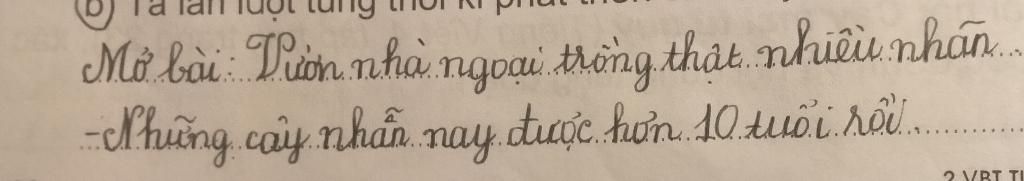 b) Tả lần lượt từng thời kì phát
Mở bài: Vườn nhà ngoại trồng thật nhiều nhãn
-Những cây nhẫn nay được hơn 10 tuổi rồi
2.VBT